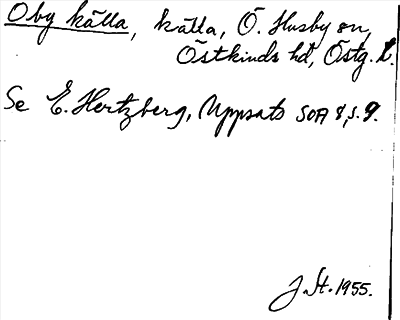 Oby källa, källa, Ö. Husby sn,
Östkinds hd, Östg. l.
Se E. Hertzberg, Uppsats SOA 8, s. 9.
J. St. 1955.